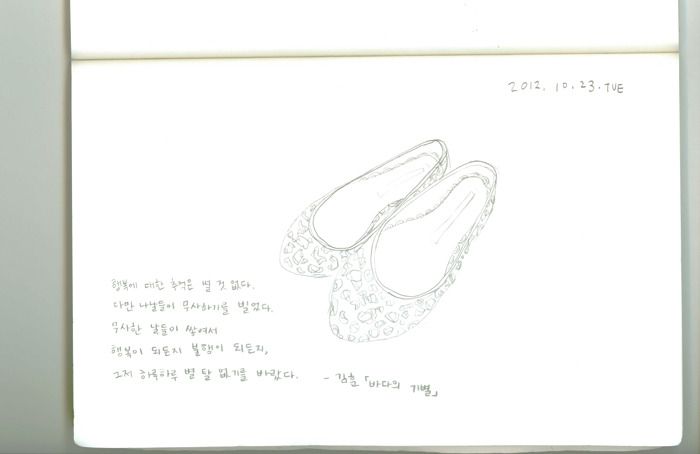 2012. 10. 23. TUE
행복에 대한 추억은 별 것 없다.
다만 나날들이 무사하기를 빌었다.
무사한 날들이 쌓여서
행복이 되든지 불행이 되든지,
그저 하루하루 별 탈 없기를 바랐다. - 김훈 「바다의 기별」